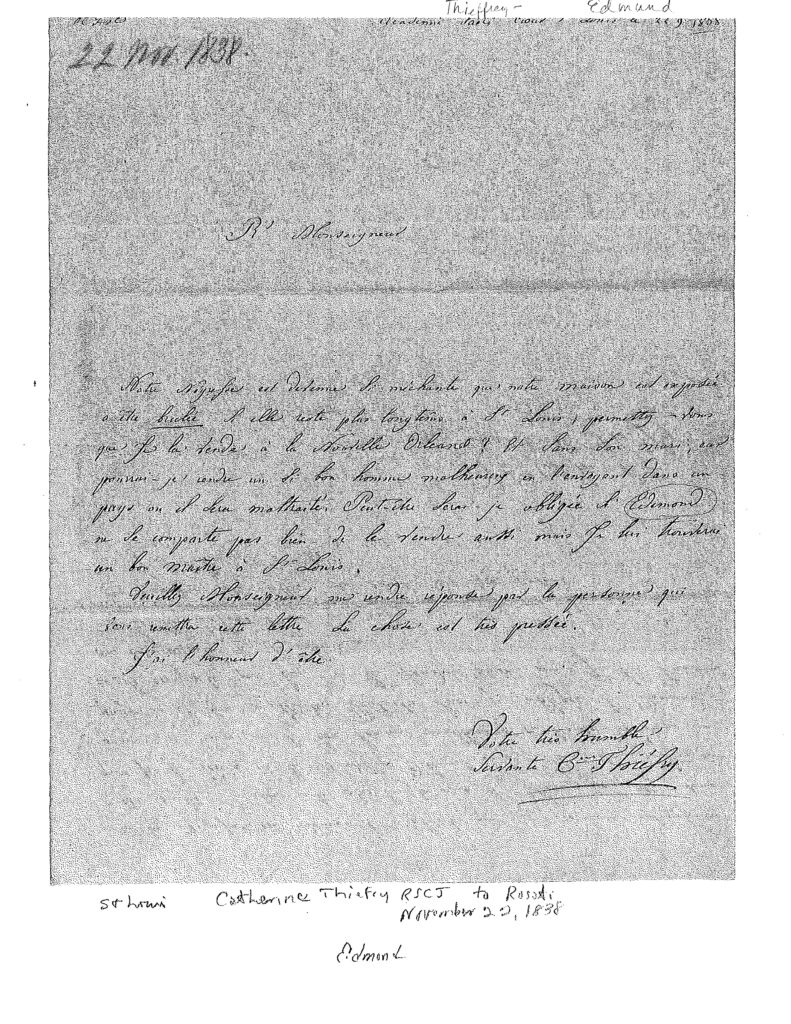 Thieffray - Edmund
22 Nov. 1838.
Rd Monseigneur
Notre Négresse est devenue si méchante que notre maison est exposée
a être brulée si elle reste plus longtems à St Louis, permettez-vous
que je la vende à la Nouvelle Orleans? Et sans son mari, car
pourrai-je rendre un si bon homme malheureux en l'envoyant dans un
pays ou il sera maltraité. Peut-être serai-je obligée si Edimond
ne se comporte pas bien de le vendre aussi mais je lui trouverai
un bon maître à St Louis.
Veuillez Monseigneur me rendre réponse par la personne qui
vous remettra cette lettre la chose est très pressée.
J'ai l'honneur d'être
Votre très humble
Servante Cine Thiéfry
St Louis Catherine Thiefry RSCJ to Rosati
November 22, 1838
Edmond